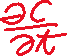 ∂C/∂t